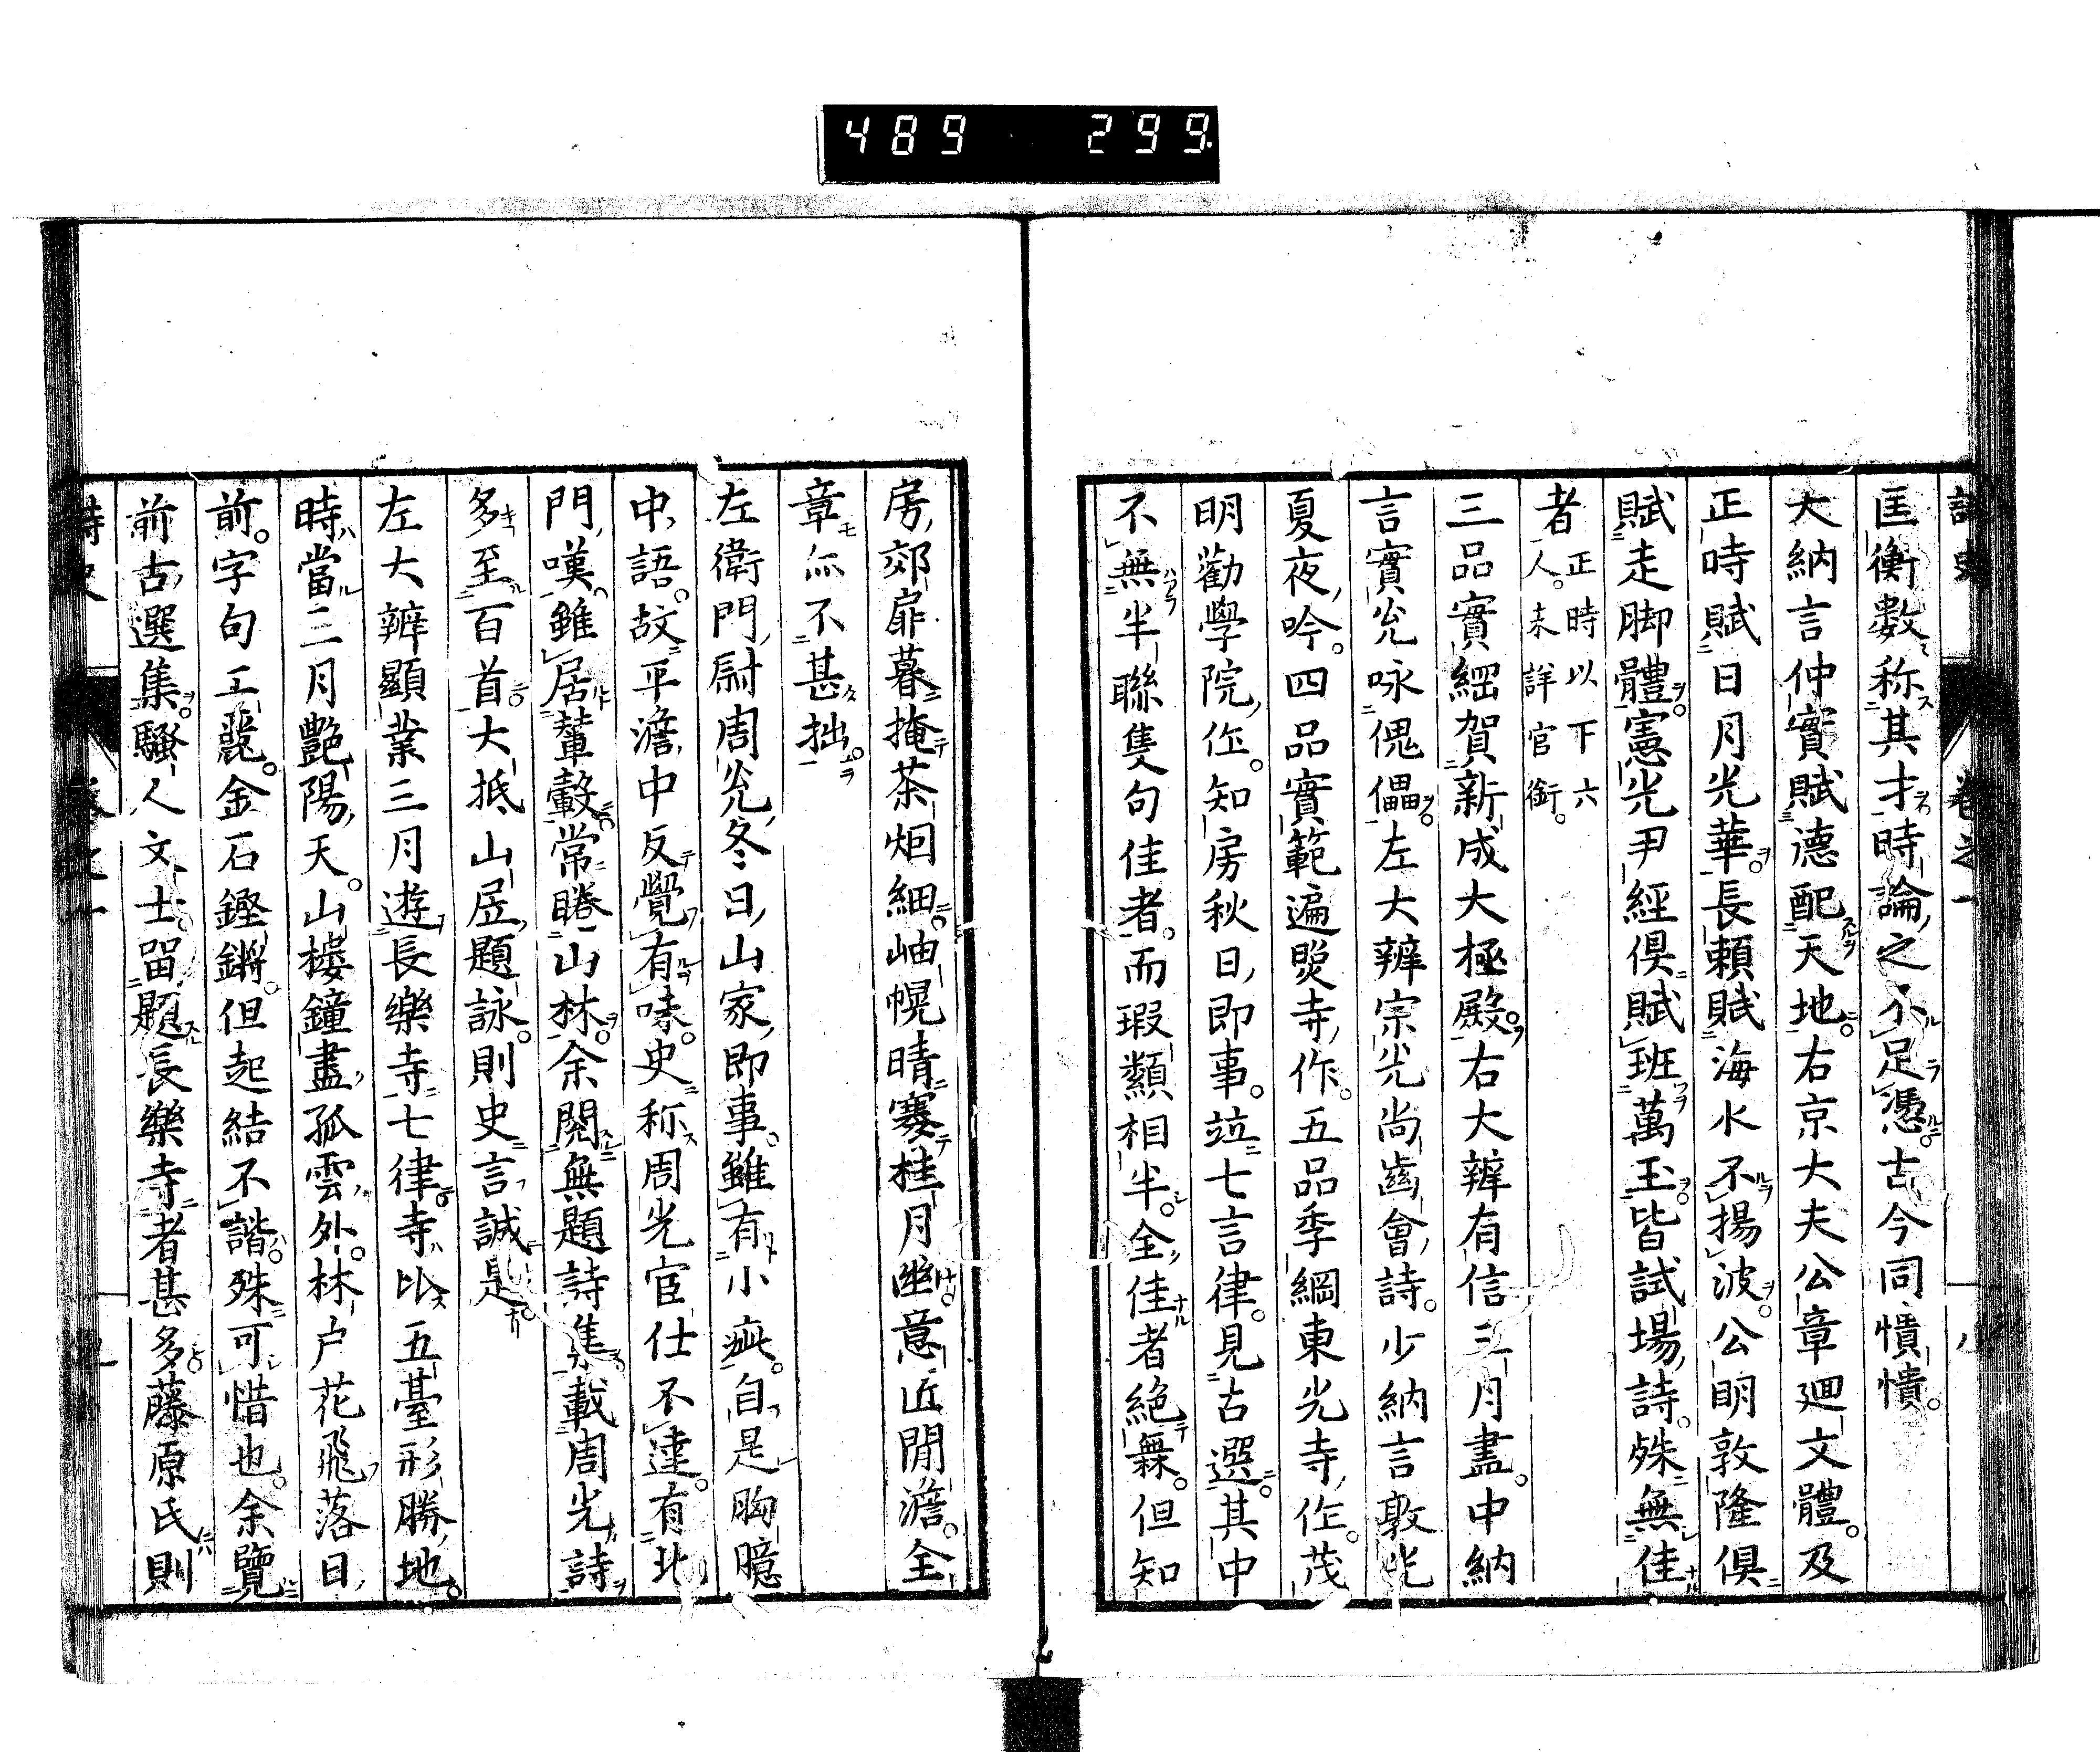 489 299
匡衡数称其才時論之不足憑古今同憒憒
大納言仲實賦德配天地右京大夫公章廻文體及
正時賦日月光華長頼賦海水不揚波公明敦隆俱
賦走脚體憲光尹經俱賦班萬玉皆試場詩殊無佳
者正時以下六人未詳官銜
三品實綱賀新成大極殿右大辨有信三月盡中納
言實光咏傀儡左大辨宗光尚齒會詩少納言敦光
夏夜吟四品實範遍照寺作五品季綱東光寺作茂
明勸學院作知房秋日即事竝七言律見古選其中
不無半聯隻句佳者而瑕纇相半全佳者絶無但知
房郊扉暮掩茶烟細岫幌晴褰桂月幽意近閒澹全
章亦不甚拙
左衛門尉周光冬日山家即事雖有小疵自是胸臆
中語故平澹中反覺有味史称周光官仕不達有北
門嘆雖居輦轂常睠山林余閲無題詩集載周光詩
多至百首大抵山居題詠則史言誠是
左大辨顯業三月遊長樂寺七律寺比五臺形勝地
時當三月艷陽天山樓鐘盡孤雲外林户花飛落日
前字句工麗金石鏗鏘但起結不諧殊可惜也余覽
前古選集騷人文士留題長樂寺者甚多藤原氏則